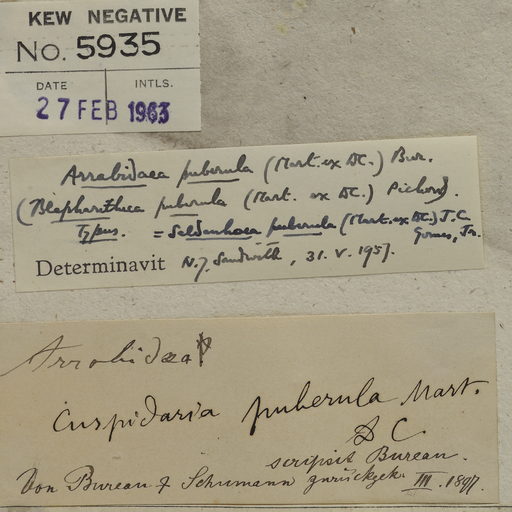 KEW NEGATIVE
No. 5935
DATE INTLS.
27 FEB 1963
Arrabidaea puberula (Mart. ex DC.) Bur.
(Blepharitheca puberula (Mart. ex DC.) Pichon).
Typus. = Saldanhaea puberula (Mart. ex DC.) J.C.
Gomes, Jr.
Determinavit N.Y. Sandwith, 31. V. 1957.
Arrabidaea
Cuspidaria puberula Mart.
DC.
scripsit Bureau.
Von Bureau & Schumann zurückgek. III. 1897.